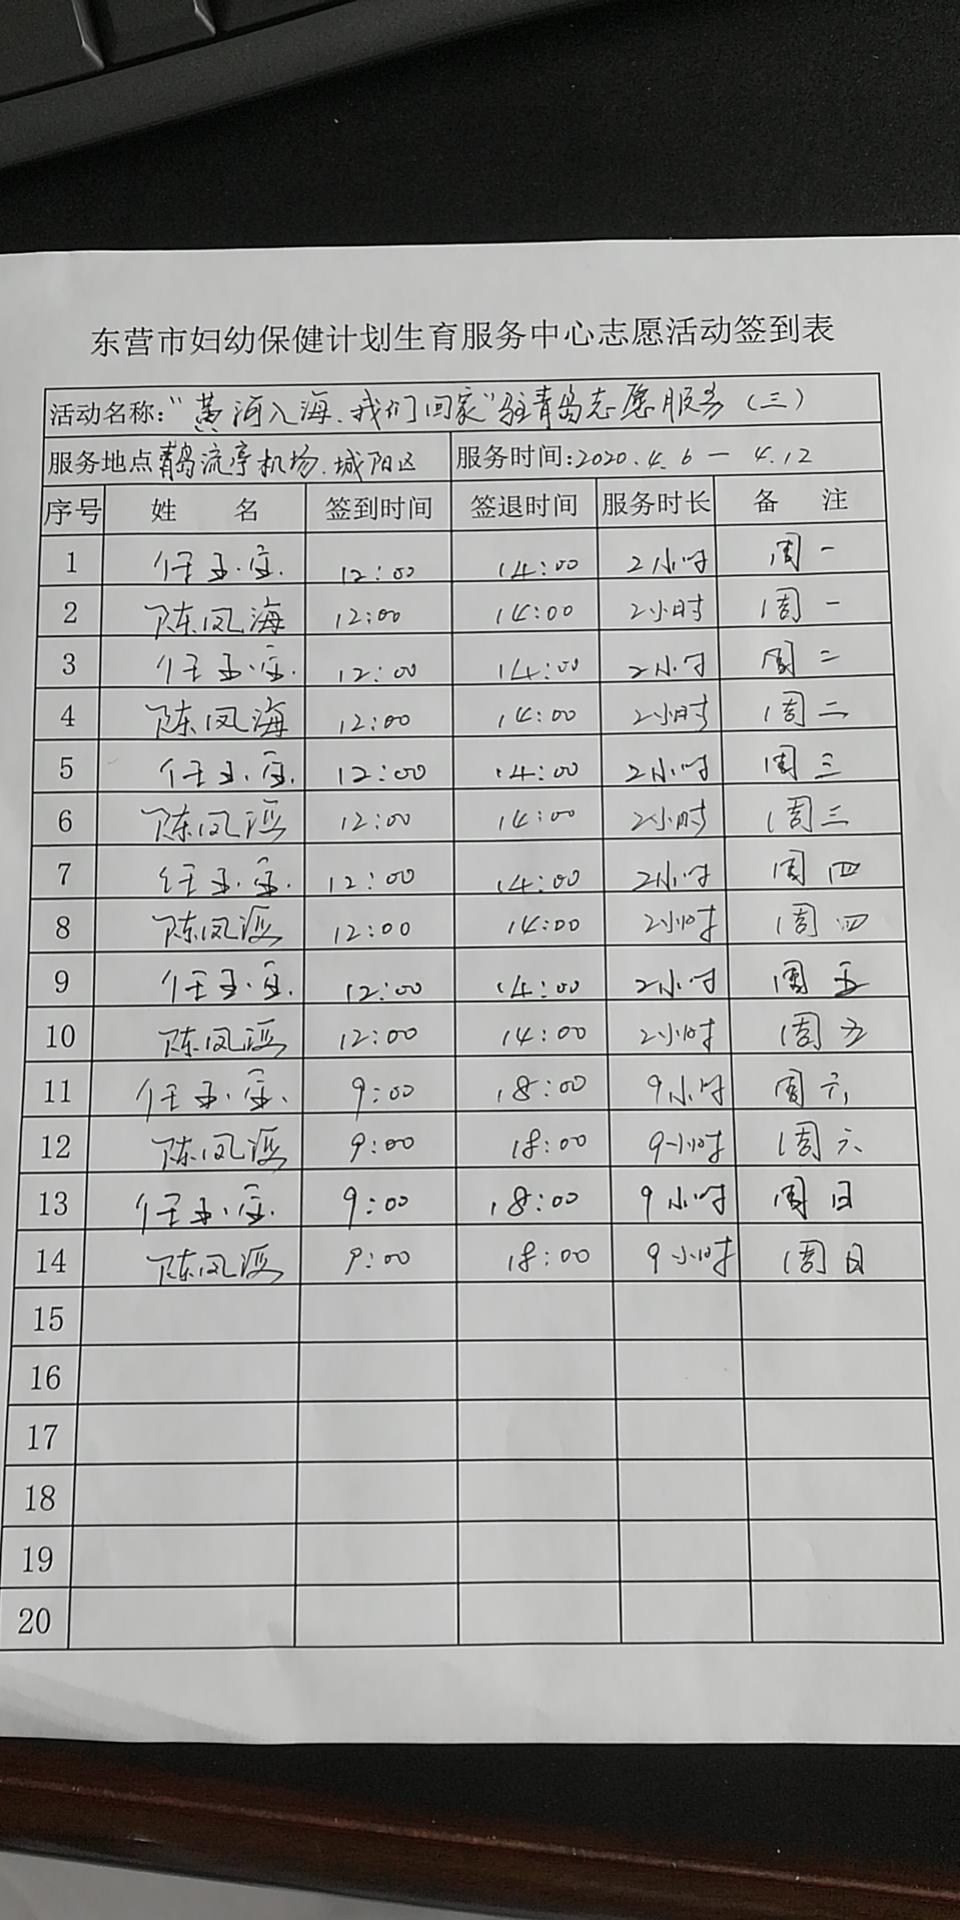 东营市妇幼保健计划生育服务中心志愿活动签到表
活动名称:“黄河入海、我们回家”驻青岛志愿服务(三)
服务地点 青岛流亭机场.城阳区 服务时间:2020.4.6—4.12
序号 姓 名 签到时间 签退时间 服务时长 备 注
1 任玉宝 12:00 14:00 2小时 周一
2 陈凤海 12:00 14:00 2小时 周一
3 任玉宝 12:00 14:00 2小时 周二
4 陈凤海 12:00 14:00 2小时 周二
5 任玉宝 12:00 14:00 2小时 周三
6 陈凤海 12:00 14:00 2小时 周三
7 任玉宝 12:00 14:00 2小时 周四
8 陈凤海 12:00 14:00 2小时 周四
9 任玉宝 12:00 14:00 2小时 周五
10 陈凤海 12:00 14:00 2小时 周五
11 任玉宝 9:00 18:00 9小时 周六
12 陈凤海 9:00 18:00 9小时 周六
13 任玉宝 9:00 18:00 9小时 周日
14 陈凤海 9:00 18:00 9小时 周日
15
16
17
18
19
20